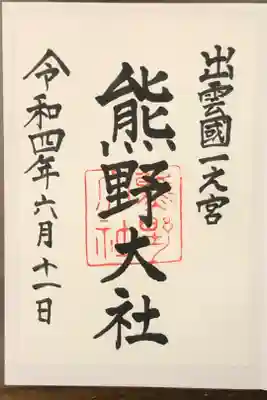 出雲國一之宮
熊野大社
令和四年六月十一日